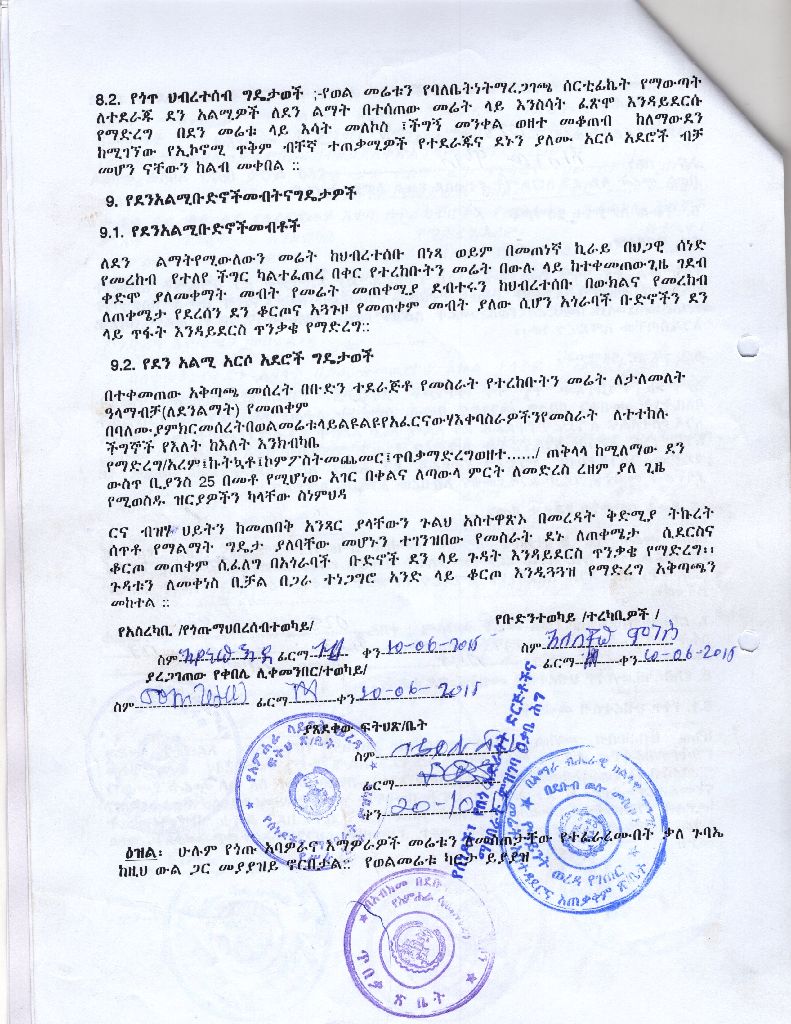 8.2. የጎጥ ህብረተሰብ ግዴታወች ;-የወል መሬቱን የባለቤትነትማረጋገጫ ሰርቲፊኬት የማውጣት
ለተደራጁ ደን አልሚዎች ለደን ልማት በተሰጠው መሬት ላይ እንስሳት ፈጽሞ እንዳይደርሱ
የማድረግ በደን መሬቱ ላይ እሳት መለኮስ ፣ችግኝ መንቀል ወዘተ መቆጠብ ከለማውደን
ከሚገኘው የኢኮኖሚ ጥቅም ብቸኛ ተጠቃሚዎች የተደራጁና ደኑን ያለሙ አርሶ አደሮች ብቻ
መሆን ናቸውን ከልብ መቀበል ።
9. የደንአልሚቡድኖችመብትናግዴታዎች
9.1. የደንአልሚቡድኖችመብቶች
ለደን ልማትየሚውለውን መሬት ከህብረተሰቡ በነጻ ወይም በመጠነኛ ኪራይ በህጋዊ ሰነድ
የመረከብ የተለየ ችግር ካልተፈጠረ በቀር የተረከቡትን መሬት በውሉ ላይ ከተቀመጠውጊዜ ገደብ
ቀድሞ ያለመቀማት መብት የመሬት መጠቀሚያ ደብተሩን ከህብረተሰቡ በውክልና የመረከብ
ለጠቀሜታ የደረሰን ደን ቆርጦና አጓጉዞ የመጠቀም መብት ያለው ሲሆን አጎራባች ቡድኖችን ደን
ላይ ጥፋት እንዳይደርስ ጥንቃቄ የማድረግ።
9.2. የደን አልሚ አርሶ አደሮች ግዴታወች
በተቀመጠው አቅጣጫ መሰረት በቡድን ተደራጅቶ የመስራት የተረከቡትን መሬት ለታለመለት
ዓላማብቻ(ለደንልማት) የመጠቀም
በባለሙያምክርመሰረትበወልመሬቱላይልዩልዩየአፈርናውሃእቀባስራዎችንየመስራት ለተተከሉ
ችግኞች የእለት ከእለት እንክብካቤ
የማድረግ/አረም፤ኩትኳቶ፤ኮምፖስትመጨመር፤ጥበቃማድረግወዘተ....../ ጠቅላላ ከሚለማው ደን
ውስጥ ቢያንስ 25 በመቶ የሚሆነው አገር በቀልና ለጣውላ ምርት ለመድረስ ረዘም ያለ ጊዜ
የሚወስዱ ዝርያዎችን ካላቸው ስነምህዳ
ርና ብዝሃ ህይትን ከመጠበቅ አንጻር ያላቸውን ጉልህ አስተዋጽኦ በመረዳት ቅድሚያ ትኩረት
ሰጥቶ የማልማት ግዴታ ያለባቸው መሆኑን ተገንዝበው የመስራት ደኑ ለጠቀሜታ ሲደርስና
ቆርጦ መጠቀም ሲፈለግ በአጎራባች ቡድኖች ደን ላይ ጉዳት እንዳይደርስ ጥንቃቄ የማድረግ፡፡
ጉዳቱን ለመቀነስ ቢቻል በጋራ ተነጋግሮ አንድ ላይ ቆርጦ እንዲጓጓዝ የማድረግ አቅጣጫን
መከተል ።
የአስረካቢ /የጎጡማህበረሰብተወካይ/
የቡድንተወካይ /ተረካቢዎች /
ስም ፊርማ ቀን 10-06-2015
ስም
ፊርማ ቀን 10-06-2015
ያረጋገጠው የቀበሌ ሊቀመንበር/ተወካይ/
ስም ፊርማ ቀን 10-06-2015
ያጸደቀው ፍትህጽ/ቤት
ስም
ፊርማ
ቀን 20-10-
ዕዝል፡ ሁሉም የጎጡ አባዎራና እማዎራዎች መሬቱን ለመስጠታቸው የተፈራረሙበት ቃለ ጉባኤ
ከዚህ ውል ጋር መያያዝይ ኖርበታል። የወልመሬቱ ካርታ ይያያዝ
ጥበቃ ጽ ቤት